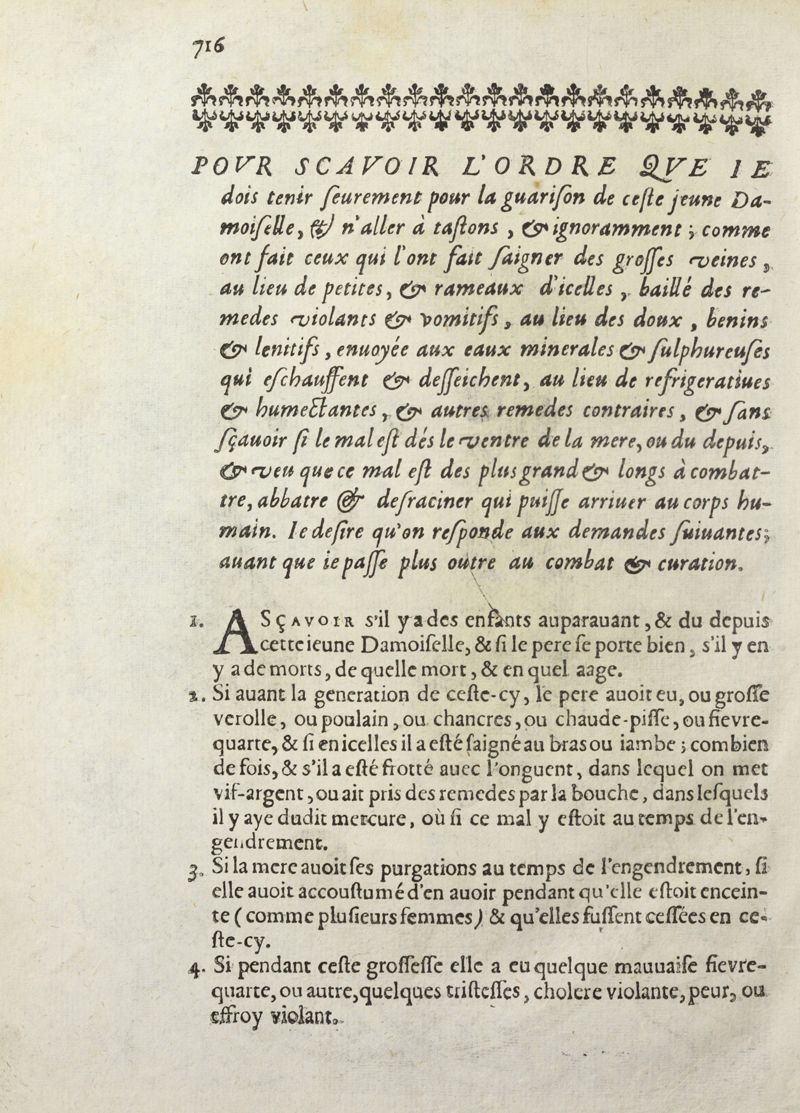 716
POVR SCAVOIR L'ORDRE QVE IE
dois tenir ſeurement pour la guariſon de ceſte jeune Da-
moiſelle, & n'aller à taſtons, & ignoramment; comme
ont fait ceux qui l'ont fait ſaigner des groſſes veines,
au lieu de petites, & rameaux d'icelles, baillé des re-
medes violants & vomitifs, au lieu des doux, benins
& lenitifs, enuoyée aux eaux minerales & ſulphureuſes
qui eſchauffent & deſſeichent, au lieu de refrigeratiues
& humectantes, & autres remedes contraires, & ſans
ſçauoir ſi le mal eſt dés le ventre de la mere, ou du depuis,
& veu que ce mal eſt des plus grand & longs à combat-
tre, abbatre & deſraciner qui puiſſe arriuer au corps hu-
main. Ie deſire qu'on reſponde aux demandes ſuiuantes;
auant que ie paſſe plus outre au combat & curation.
1. A SÇAVOIR s'il y a des enfants auparauant, & du depuis
cette ieune Damoiſelle, & ſi le pere ſe porte bien, s'il y en
y a de morts, de quelle mort, & en quel aage.
2. Si auant la generation de ceſte-cy, le pere auoit eu, ou groſſe
verolle, ou poulain, ou chancres, ou chaude-piſſe, ou fievre-
quarte, & ſi en icelles il a eſté ſaigné au bras ou iambe; combien
de fois, & s'il a eſté frotté auec l'onguent, dans lequel on met
vif-argent, ou ait pris des remedes par la bouche, dans leſquels
il y aye dudit mercure, où ſi ce mal y eſtoit au temps de l'en-
gendrement.
3. Si la mere auoit ſes purgations au temps de l'engendrement, ſi
elle auoit accouſtumé d'en auoir pendant qu'elle eſtoit encein-
te (comme pluſieurs femmes) & qu'elles fuſſent ceſſées en ce-
ſte-cy.
4. Si pendant ceſte groſſeſſe elle a eu quelque mauuaiſe fievre-
quarte, ou autre, quelques triſteſſes, cholere violante, peur, ou
effroy violant.